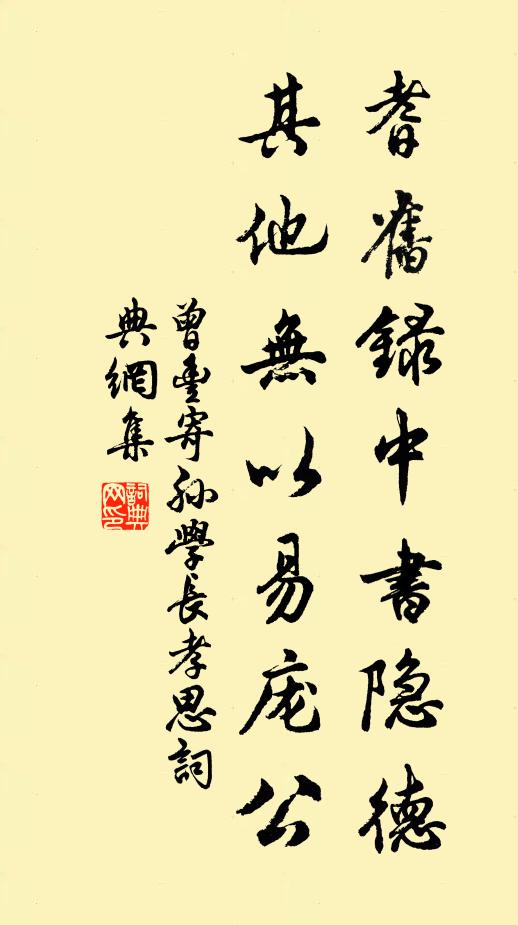 耆舊録中書隐德
其他無以易庞公
曾豊寄孙學長孝思詞
典網集
詞典网印